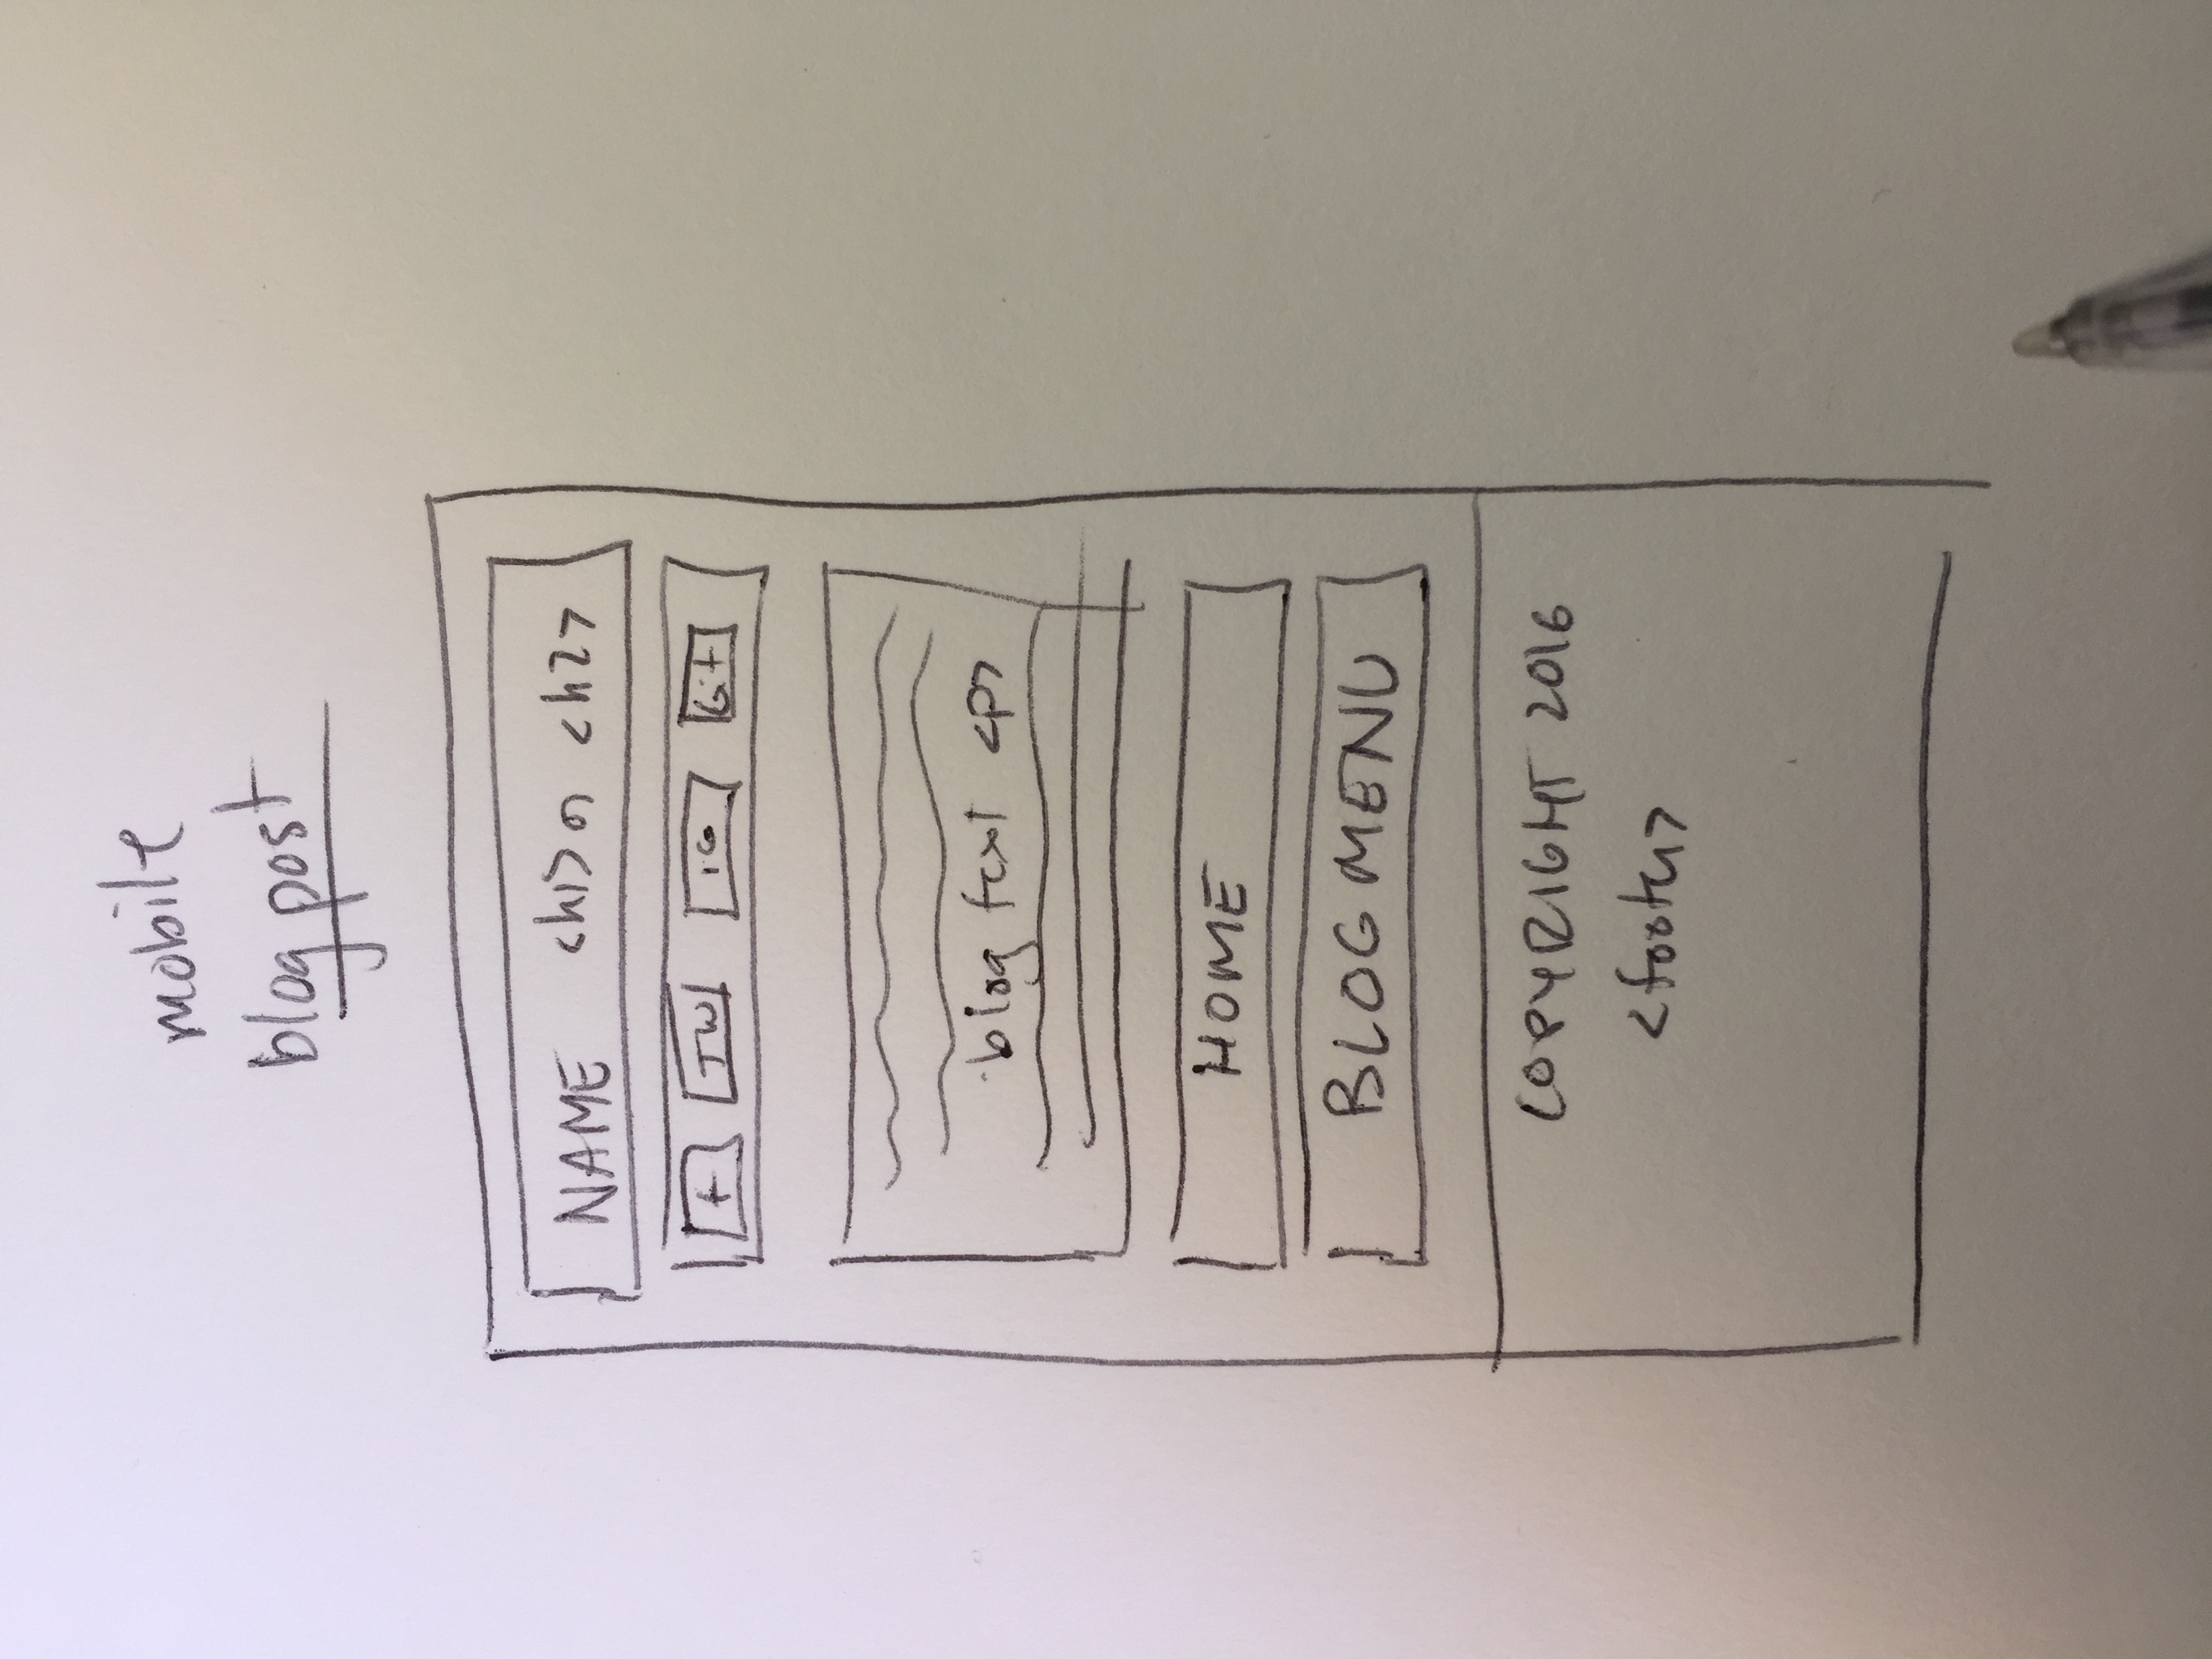 mobile
blog post
NAME <h1> or <h2>
f TW IG G+
blog text <p>
HOME
BLOG MENU
COPYRIGHT 2016
<footer>